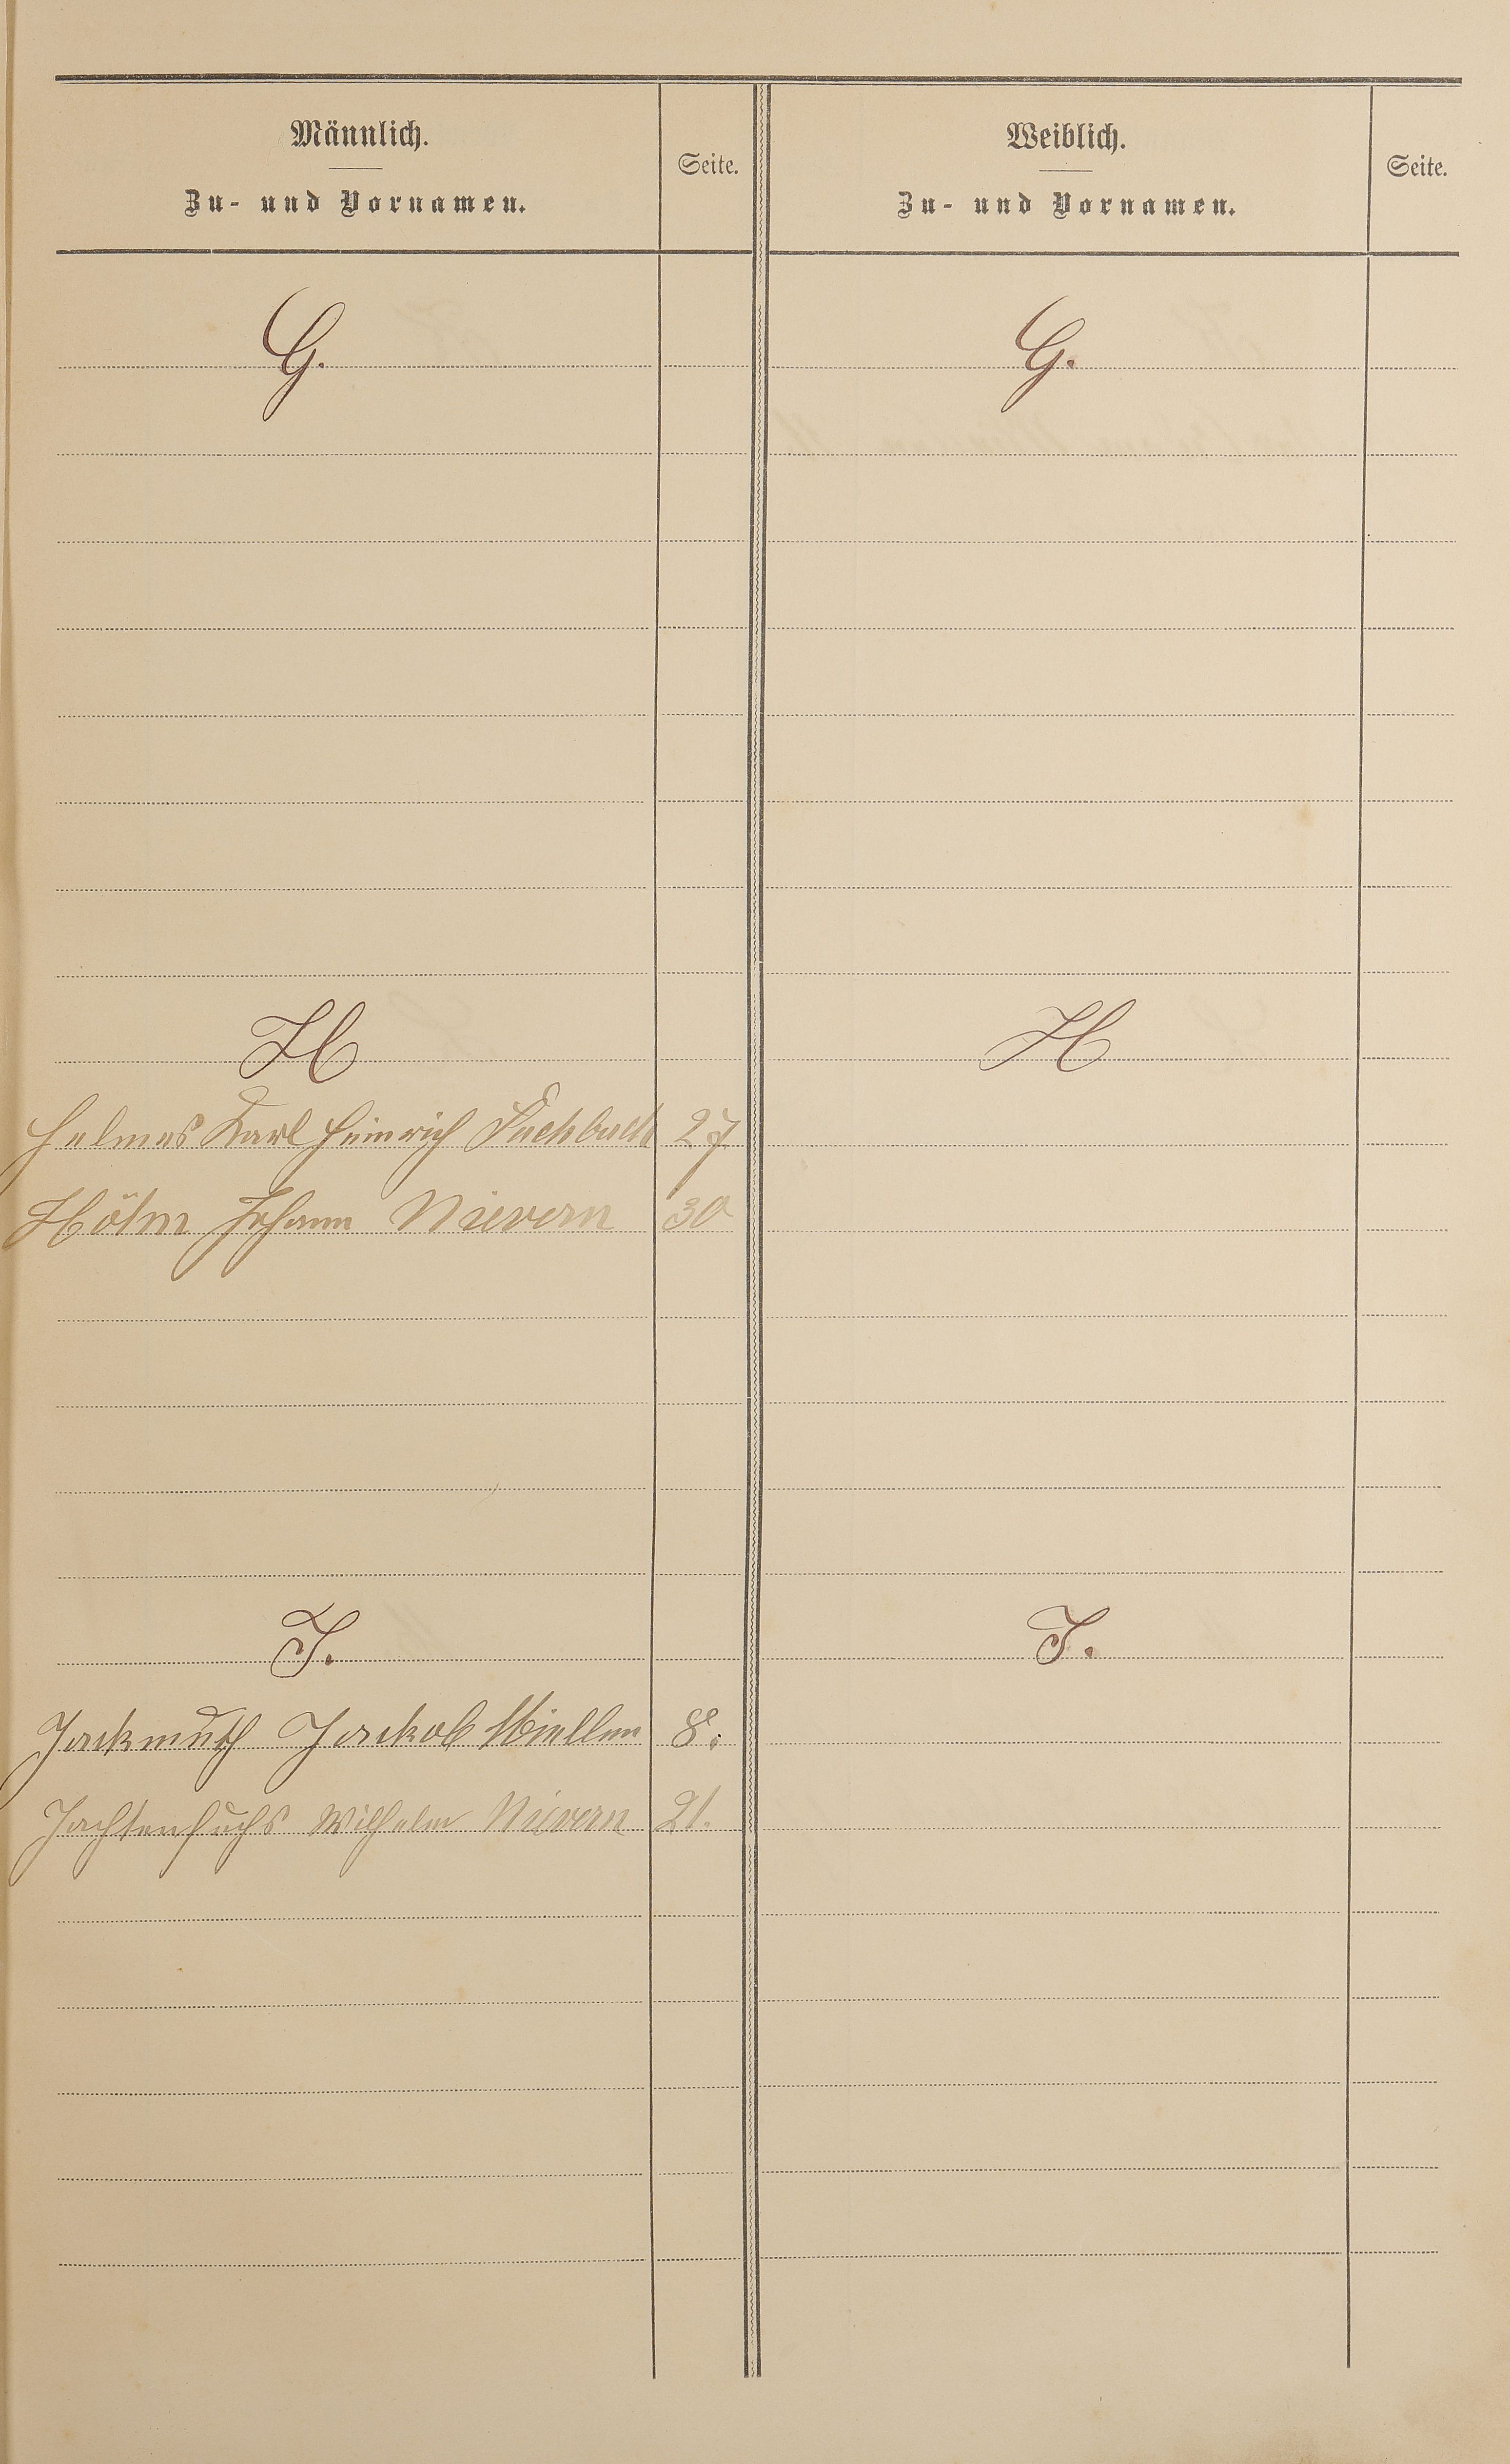 Männlich.
Zu- und Vornamen.
Seite.
Weiblich.
Zu- und Vornamen.
Seite.
G.
G.
H
H
Helmes Karl Heinrich Fachbach 27
Höhn Johann Nievern 30
J.
J.
Jackmuth Jackob Miellen 8.
Jachtenfuchs Wilhelm Nievern 21.